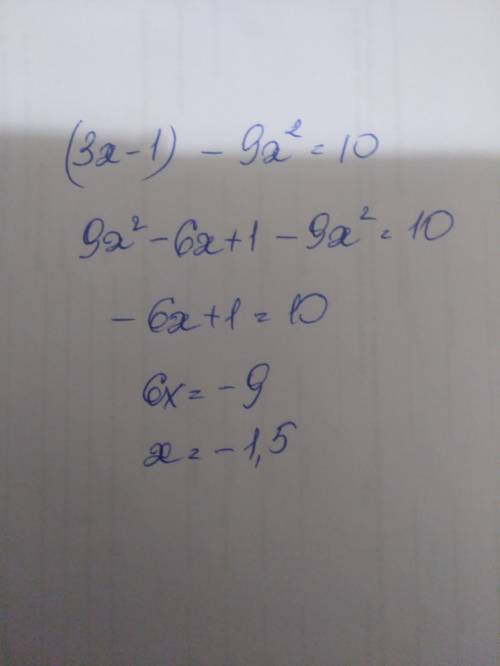 (3x-1) - 9x² = 10
9x² - 6x + 1 - 9x² = 10
- 6x + 1 = 10
6x = - 9
x = - 1,5